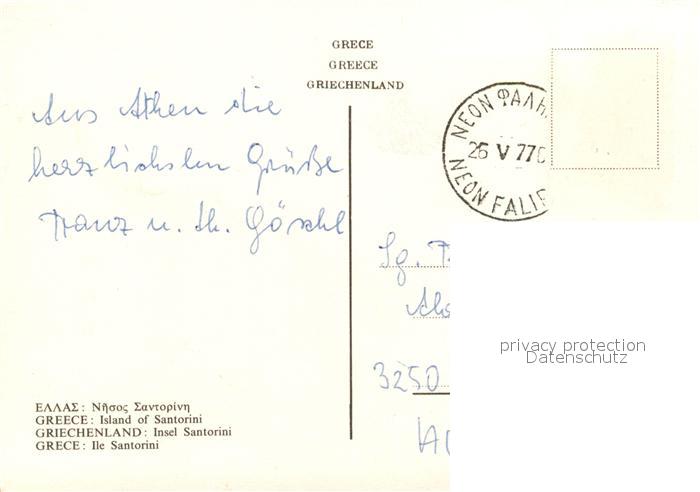 GRECE
GREECE
GRIECHENLAND
Aus Athen die
herzlichsten Grüße
Franz u. th. Göschl
ΝΕΟΝ ΦΑΛΗ
26 V 77
NEON FALIR
Sg.
3250
privacy protection
Datenschutz
ΕΛΛΑΣ: Νῆσος Σαντορίνη
GREECE: Island of Santorini
GRIECHENLAND: Insel Santorini
GRECE: Ile Santorini